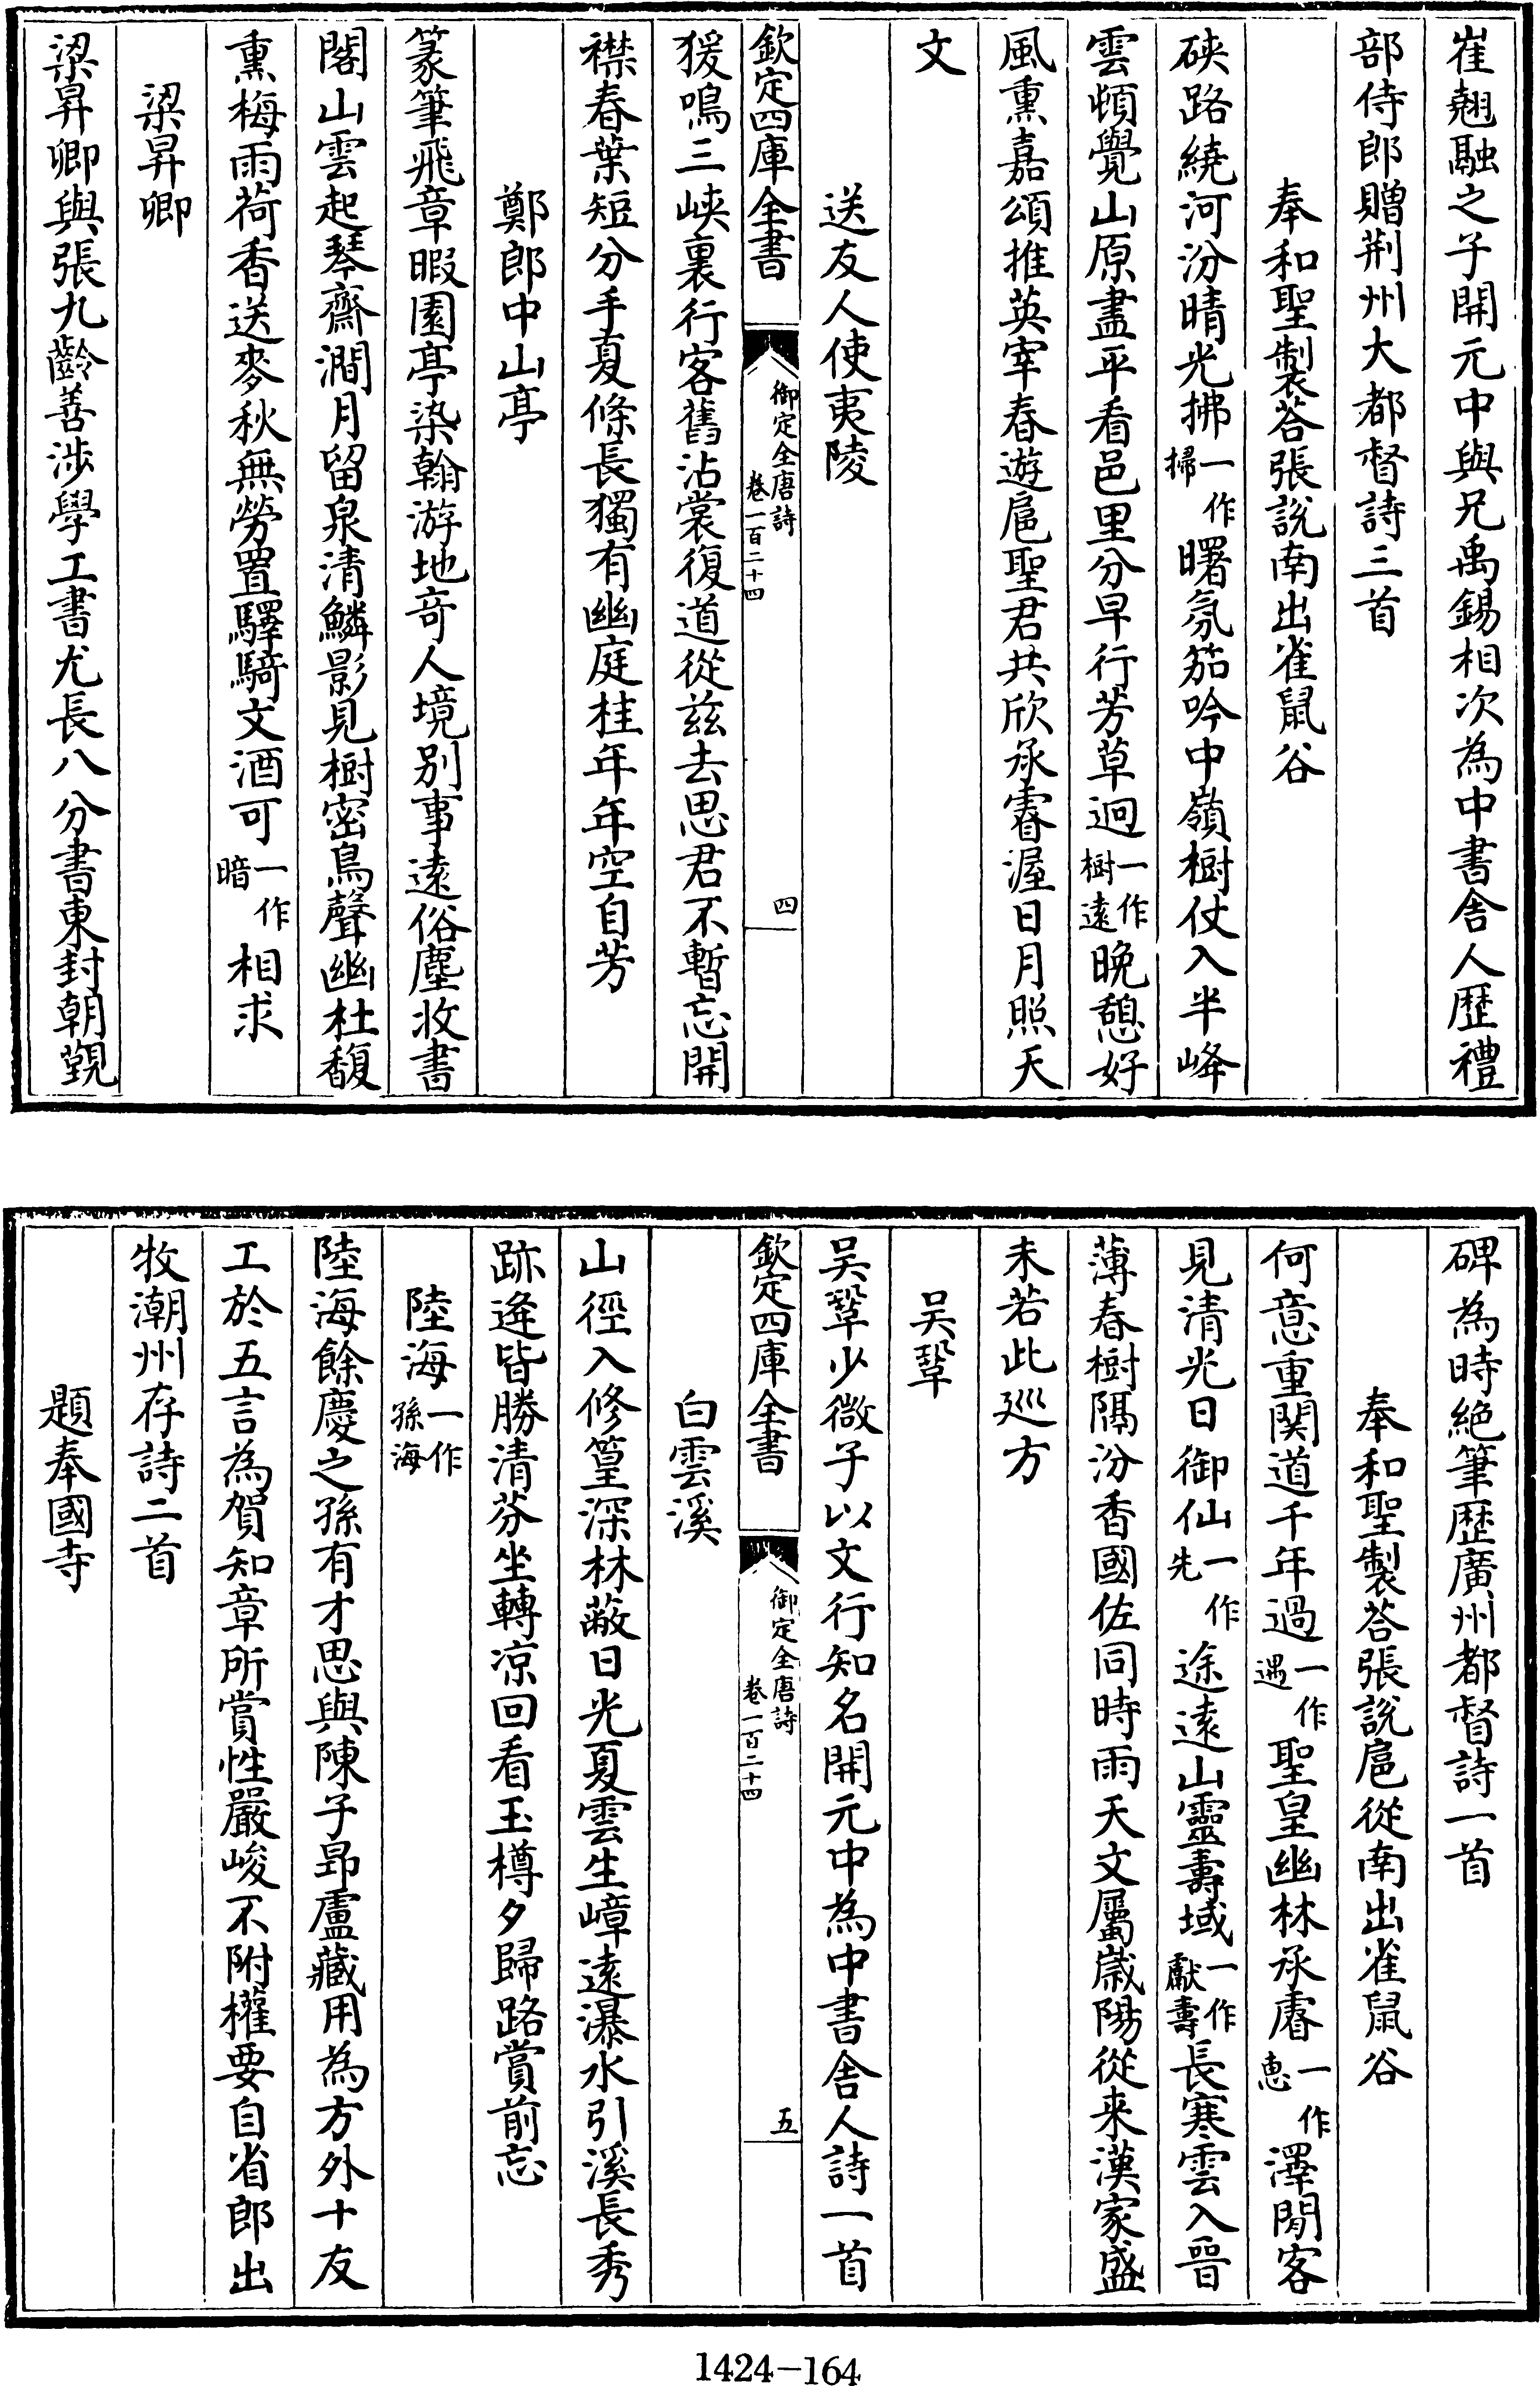 崔翹融之子開元中與兄禹錫相次為中書舍人歴禮
部侍郎贈荆州大都督詩三首
奉和聖製荅張說南出雀鼠谷
硤路繞河汾晴光拂一作掃曙氛笳吟中嶺樹仗入半峰
雲頓覺山原盡平看邑里分早行芳草迥一作樹遠晚憩好
風熏嘉頌推英宰春遊扈聖君共欣承睿渥日月照天
文
送友人使夷陵
欽定四庫全書 御定全唐詩 卷一百二十四 四
猨鳴三峽裏行客舊沾裳復道從兹去思君不暫忘開
襟春葉短分手夏條長獨有幽庭桂年年空自芳
鄭郎中山亭
篆筆飛章暇園亭染翰游地奇人境别事遠俗塵收書
閣山雲起琴齋澗月留泉清鱗影見樹密鳥聲幽杜馥
熏梅雨荷香送麥秋無勞置驛騎文酒可一作暗相求
梁昇卿
梁昇卿與張九齡善涉學工書尤長八分書東封朝覲
碑為時絶筆歴廣州都督詩一首
奉和聖製荅張說扈從南出雀鼠谷
何意重關道千年過一作遇聖皇幽林承睿一作惠澤閒客
見清光日御仙一作先途遠山靈壽域一作獻壽長寒雲入晉
薄春樹隔汾香國佐同時雨天文屬歲陽從来漢家盛
未若此廵方
吴鞏
吴鞏少微子以文行知名開元中為中書舍人詩一首
欽定四庫全書 御定全唐詩 卷一百二十四 五
白雲溪
山徑入修篁深林蔽日光夏雲生嶂遠瀑水引溪長秀
跡逢皆勝清芬坐轉凉回看玉樽夕歸路賞前忘
陸海一作孫海
陸海餘慶之孫有才思與陳子昻盧藏用為方外十友
工於五言為賀知章所賞性嚴峻不附權要自省郎出
牧潮州存詩二首
題奉國寺
1424-164